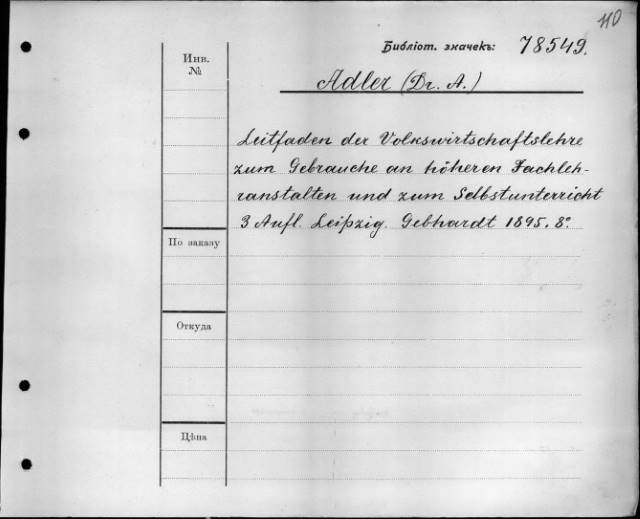 110
Библіот. значекъ: 78549.
Инв.
№
Adler (Dr. A.)
Leitfaden der Volkswirtschaftslehre
zum Gebrauche an höheren Fachleh-
ranstalten und zum Selbstunterricht
3 Aufl. Leipzig. Gebhardt 1895. 8º
По заказу
Откуда
Цѣна